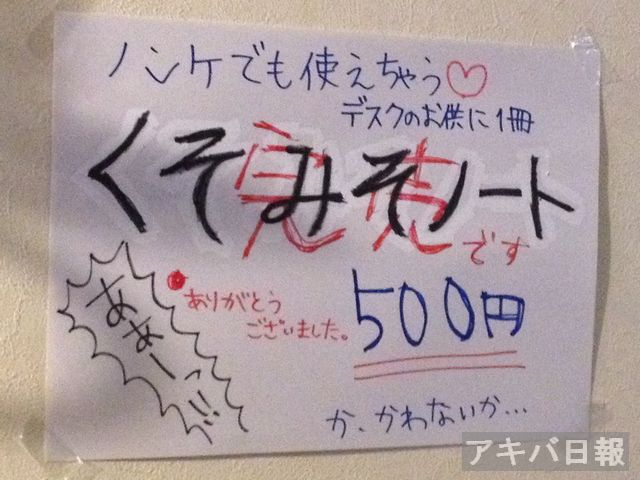 ノンケでも使えちゃう♡
デスクのお供に1冊
くそみそノート
完売です
ありがとう
ございました。
500円
あぁーっ!!
か、かわないか…
アキバ日報